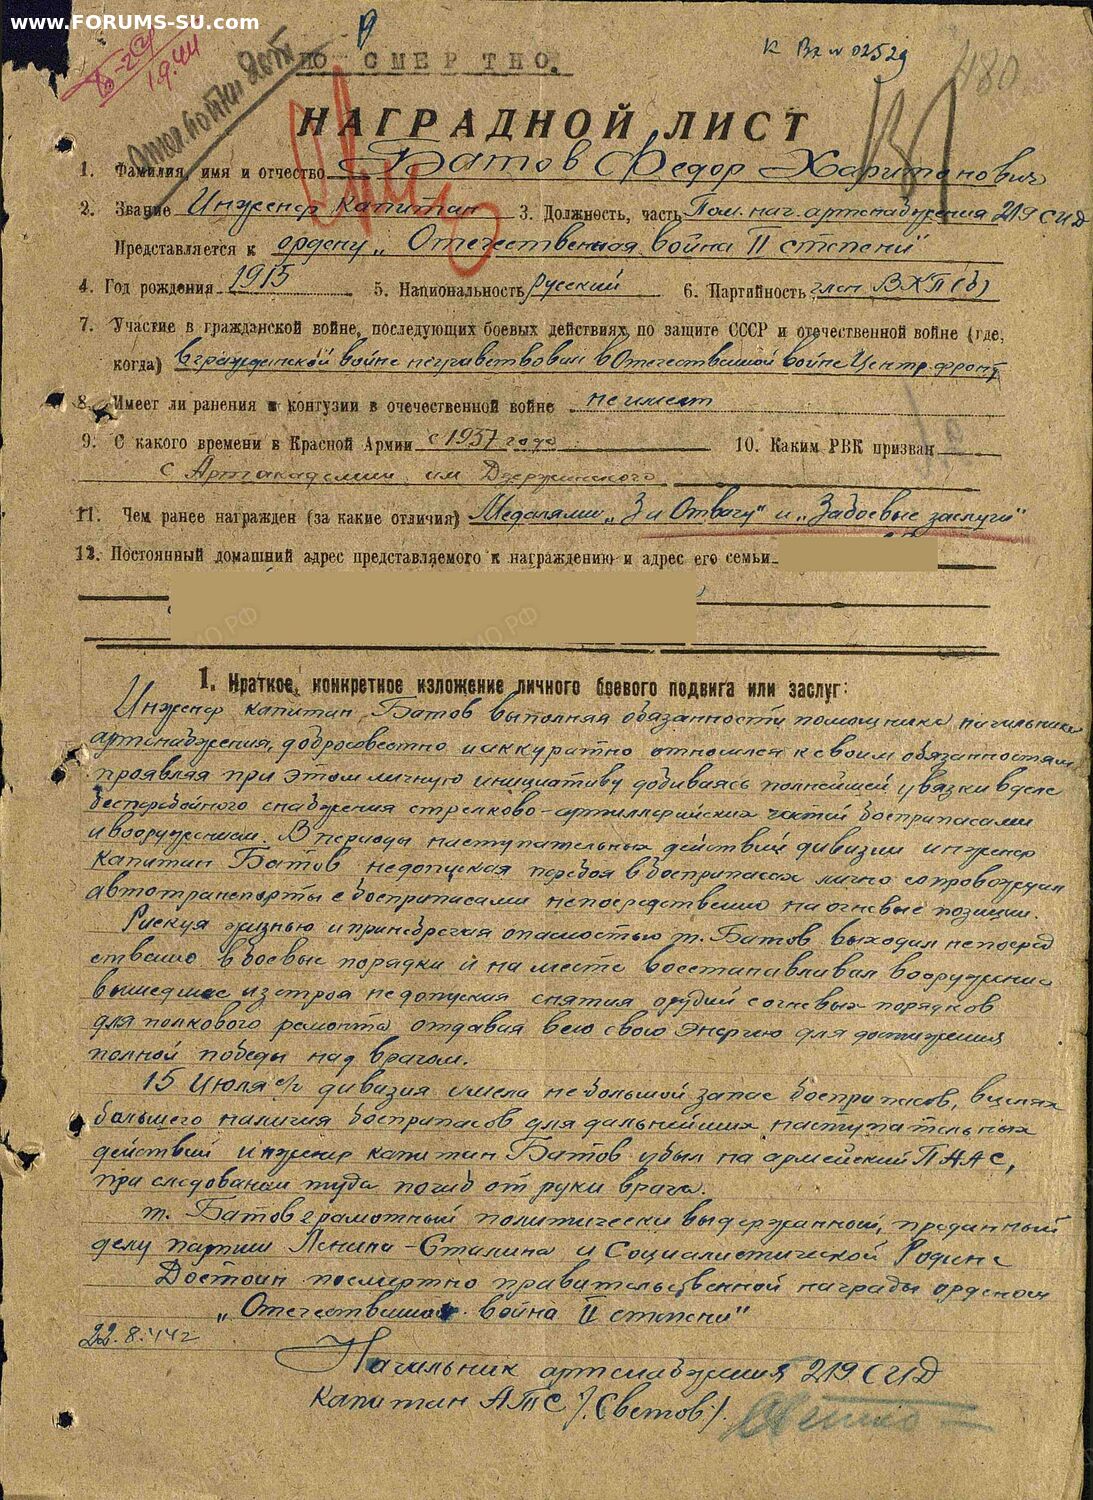 www.FORUMS-SU.com
9
К Вх № 02529
480
19.44
ПО СМЕРТНО.
НАГРАДНОЙ ЛИСТ
1. Фамилия, имя и отчество Батов Федор Харитонович
2. Звание Инженер капитан 3. Должность, часть Пом. нач. артснабжения 219 СИД
Представляется к ордену „Отечественная война II степени"
4. Год рождения 1915 5. Национальность русский 6. Партийность член ВКП(б)
7. Участие в гражданской войне, последующих боевых действиях по защите СССР и отечественной войне (где,
когда) в гражданской войне не участвовал в Отечественной войне Центр. фронт
8. Имеет ли ранения и контузии в отечественной войне не имеет
9. С какого времени в Красной Армии с 1937 года 10. Каким РВК призван
с Артакадемии им Дзержинского
11. Чем ранее награжден (за какие отличия) Медалями „За Отвагу" и „За боевые заслуги"
12. Постоянный домашний адрес представляемого к награждению и адрес его семьи
1. Краткое, конкретное изложение личного боевого подвига или заслуг:
Инженер капитан Батов выполняя обязанности помощника начальника
артснабжения, добросовестно и аккуратно относился к своим обязанностям
проявляя при этом личную инициативу добиваясь полнейшей увязки в деле
бесперебойного снабжения стрелково-артиллерийских частей боеприпасами
и вооружением. В периоды наступательных действий дивизии инженер
капитан Батов недопуская перебоя в боеприпасах лично сопровождал
автотранспорты с боеприпасами непосредственно на огневые позиции.
Рискуя жизнью и принебрегая опасностью т. Батов выходил непосред
ственно в боевые порядки и на месте восстанавливал вооружение
вышедшее из строя недопуская снятия орудий с огневых порядков
для полкового ремонта отдавая всю свою энергию для достижения
полной победы над врагом.
15 Июля дивизия имела небольшой запас боеприпасов, в целях
большего наличия боеприпасов для дальнейших наступательных
действий инженер капитан Батов убыл на армейский ПААС,
при следовании туда погиб от руки врага.
т. Батов грамотный политически выдержанной, преданный
делу партии Ленина-Сталина и Социалистической Родине
Достоин посмертно правительственной награды орденом
„Отечественная война II степени"
22.8.44г
Начальник артснабжения 219 СИД
капитан АТС /Светов/.